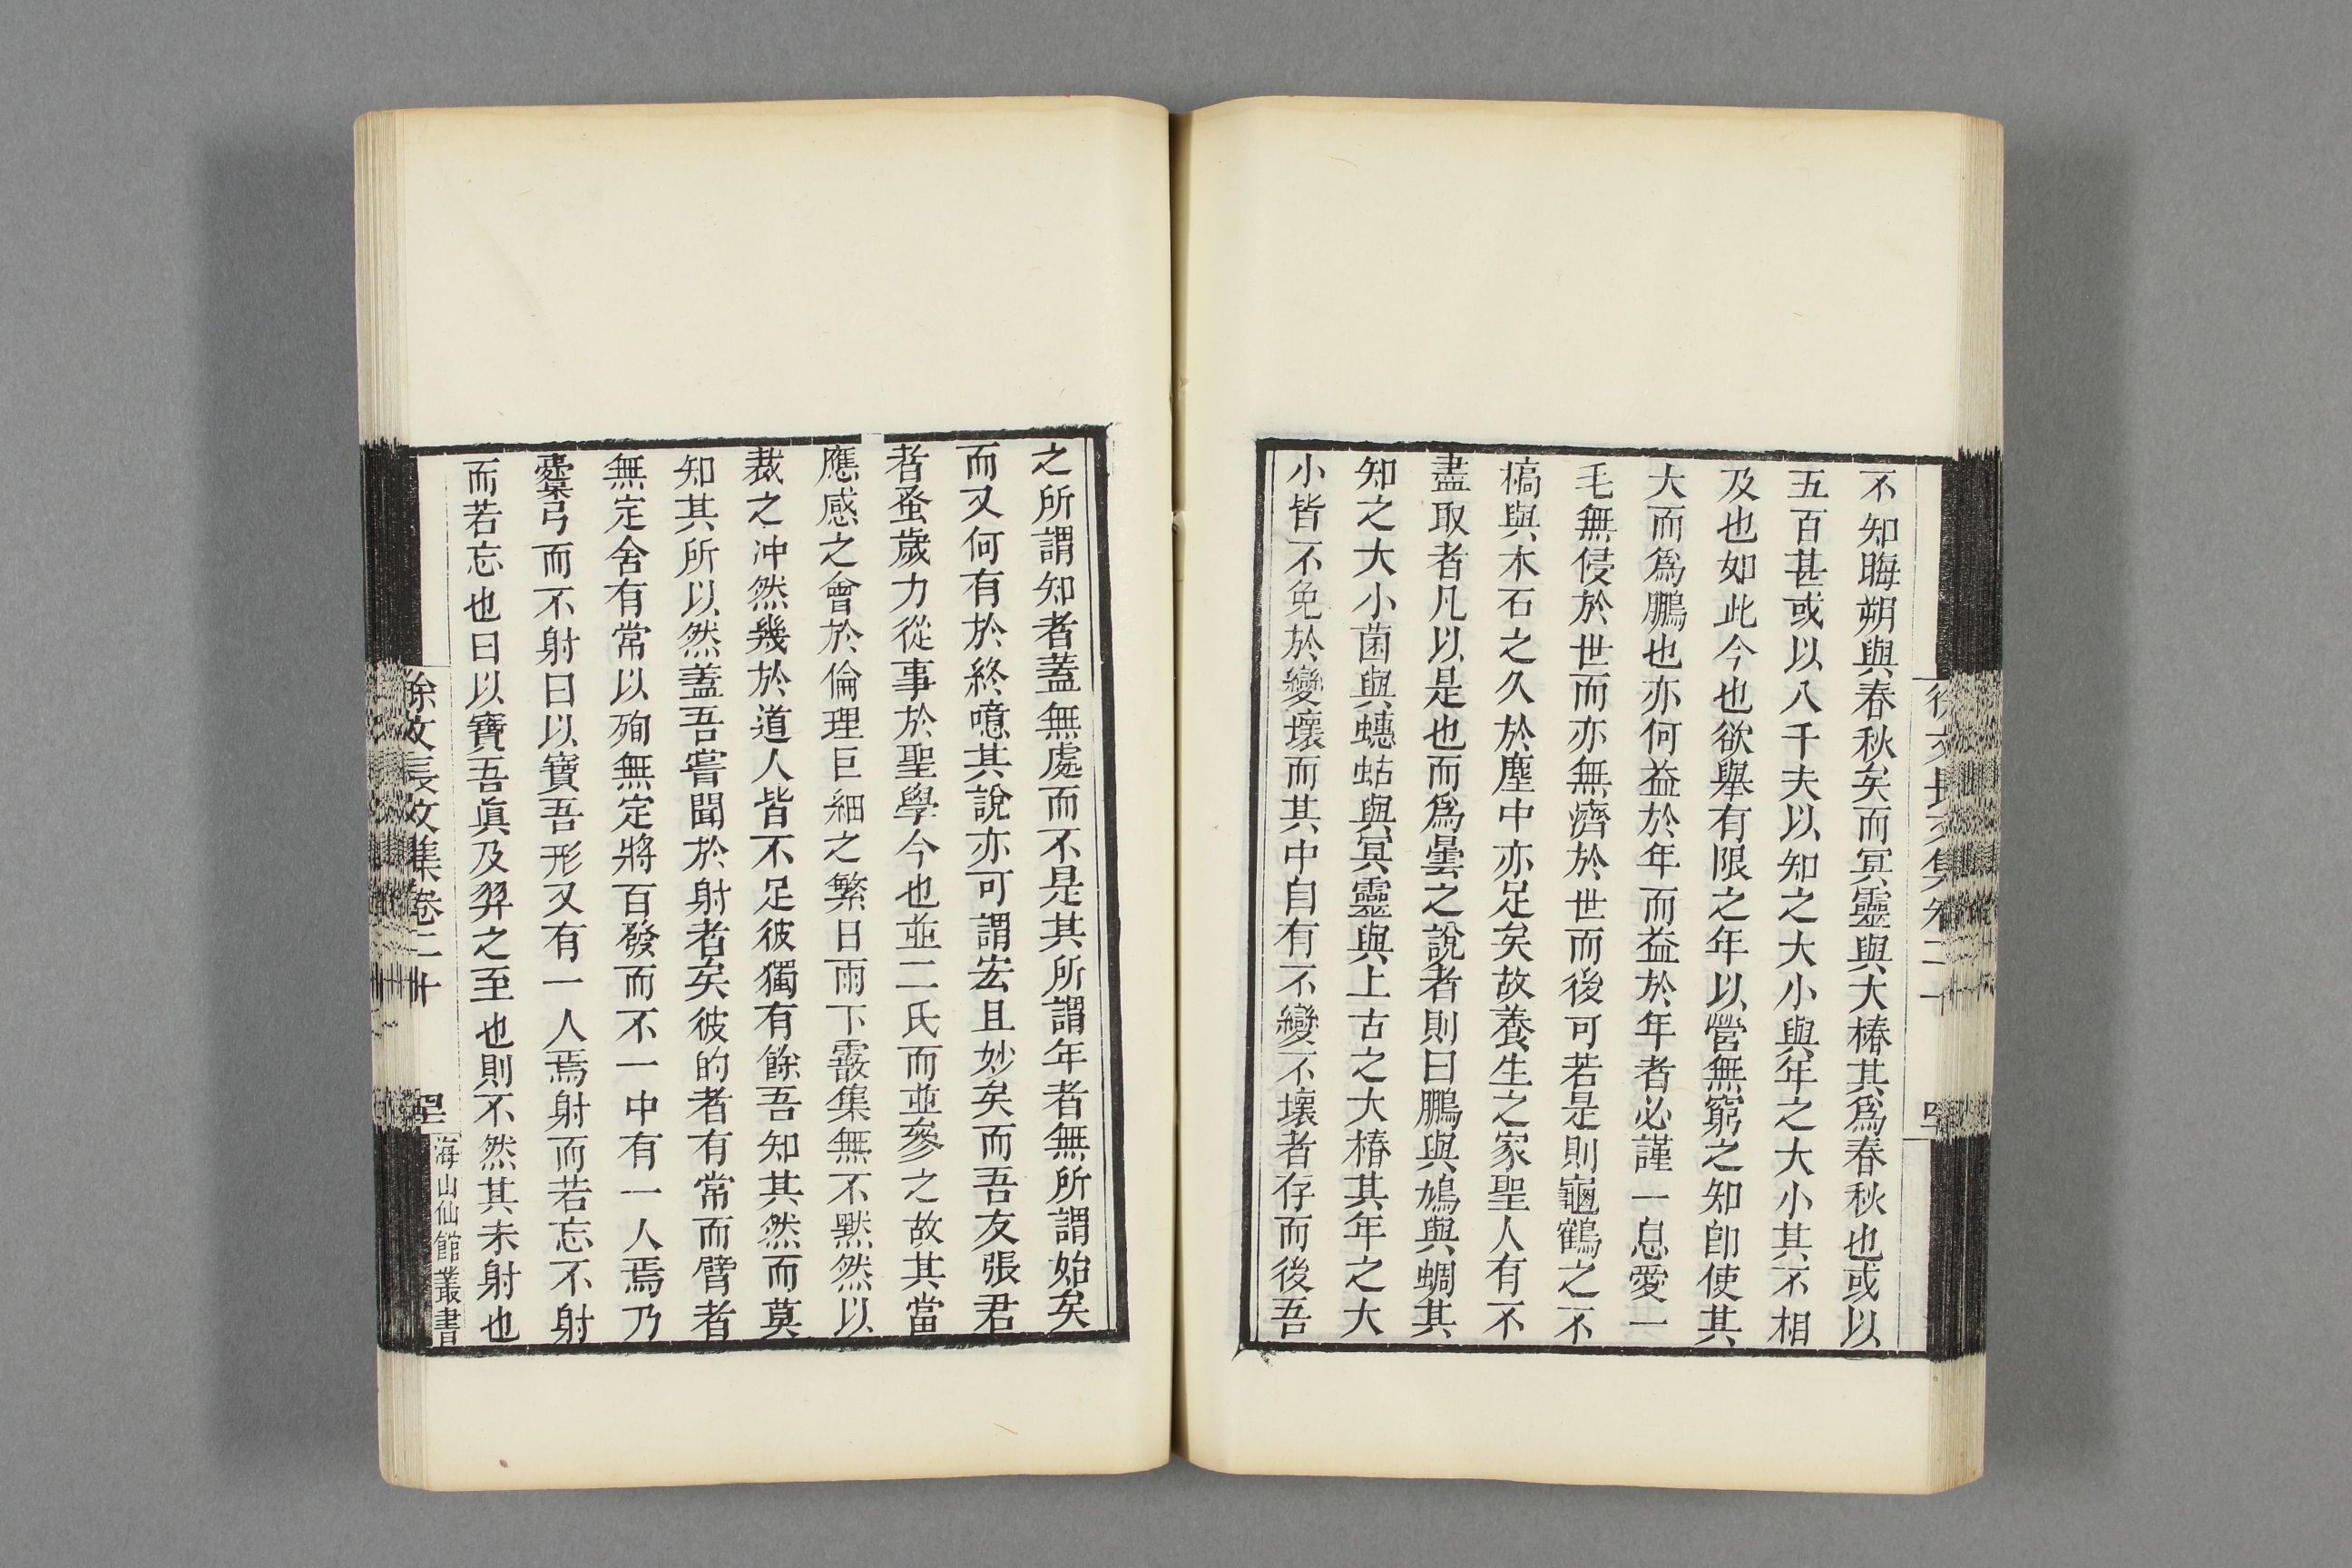 不知晦朔與春秋矣而冥靈與大椿其爲春秋也或以
五百甚或以八千夫以知之大小與年之大小其不相
及也如此今也欲舉有限之年以營無窮之知卽使其
大而爲鵬也亦何益於年而益於年者必謹一息愛一
毛無侵於世而亦無濟於世而後可若是則龜鶴之不
槁與木石之久於塵中亦足矣故養生之家聖人有不
盡取者凡以是也而爲曇之說者則曰鵬與鳩與蜩其
知之大小菌與蟪蛄與冥靈與上古之大椿其年之大
小皆不免於變壞而其中自有不變不壞者存而後吾
之所謂知者蓋無處而不是其所謂年者無所謂始矣
而又何有於終噫其說亦可謂宏且妙矣而吾友張君
者蚤歲力從事於聖學今也並二氏而並參之故其當
應感之會於倫理巨細之繁日雨下霰集無不黙然以
裁之冲然幾於道人皆不足彼獨有餘吾知其然而莫
知其所以然蓋吾嘗聞於射者矣彼的者有常而臂者
無定舍有常以殉無定將百發而不一中有一人焉乃
櫜弓而不射曰以寶吾形又有一人焉射而若忘不射
而若忘也曰以寶吾眞及羿之至也則不然其未射也
徐文長文集卷二十
海山仙館叢書